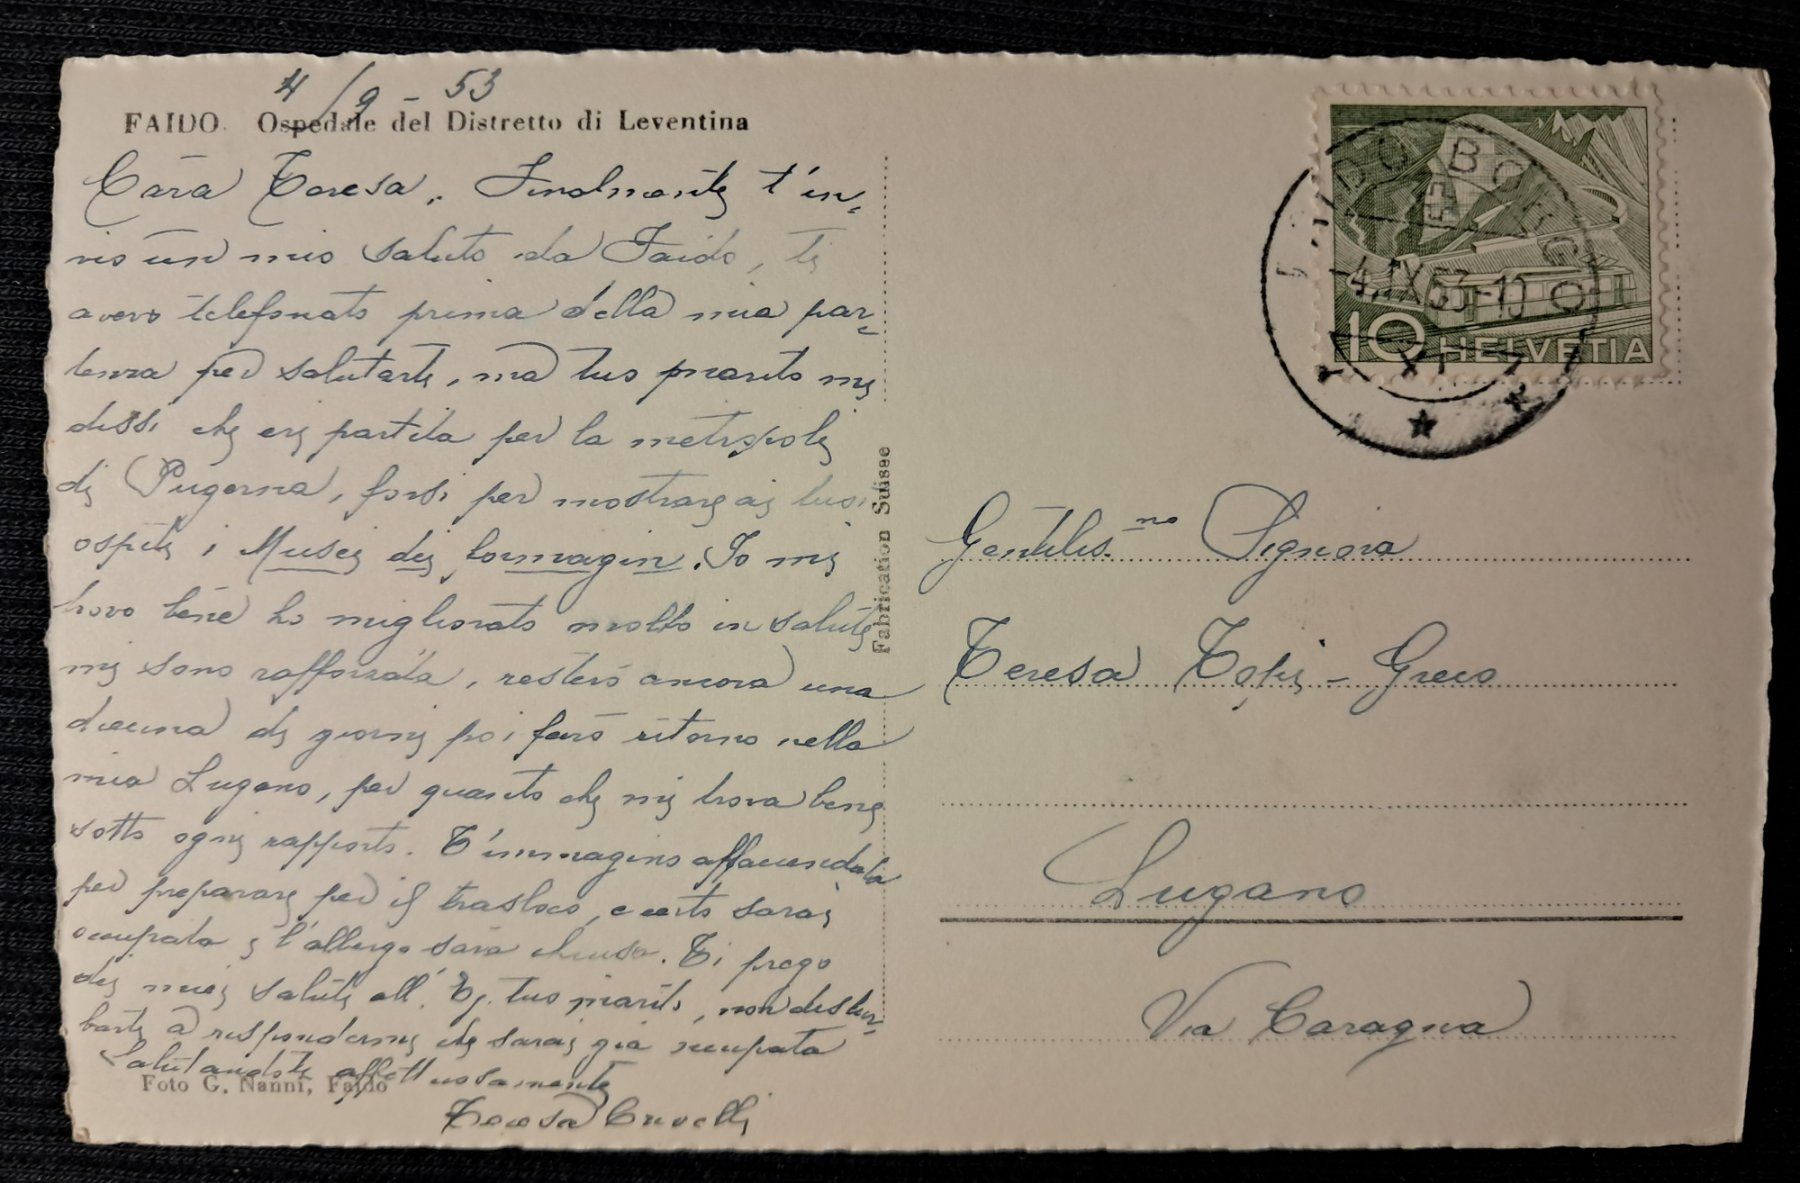 4/9-53
FAIDO. Ospedale del Distretto di Leventina
Cara Teresa, Finalmente t'in-
vio un mio saluto da Faido, ti
avevo telefonato prima della mia par-
tenza per salutarti, ma tuo marito mi
dissi che eri partita per la metropoli
di Pugerna, forsi per mostrare ai tuoi
ospiti i Musei dei formagin. Io mi
trovo bene ho migliorato molto in salute
mi sono rafforzata, resterò ancora una
diecina di giorni poi farò ritorno nella
mia Lugano, per quanto che mi trova bene
sotto ogni rapporto. T'immagino affacendata
per preparare per il trasloco, e certo sarai
occupata e l'albergo sarà chiuso. Ti prego
dei miei saluti all' Eg. tuo marito, non distur-
barti a rispondermi che sarai già occupata
Salutandoti affettuosamente
Teresa Crivelli
Foto G. Nanni, Faido
Fabrication Suisse
10 HELVETIA
FAIDO BORGO
-4.IX.53-10
Gentilis.ma Signora
Teresa Topi - Greco
Lugano
Via Caragna